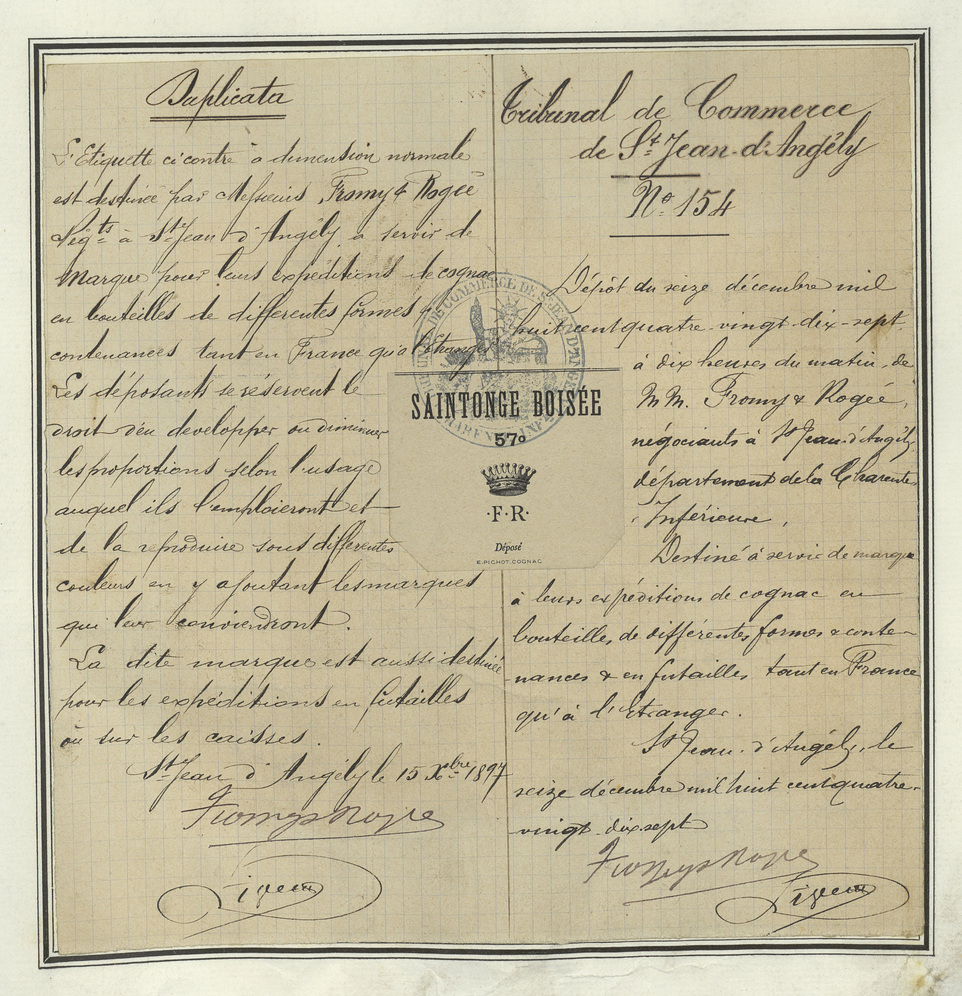 Duplicata
L'Etiquette ci contre à dimension normale
est destinée par Messieurs Fromy & Rogée
Négts à St Jean d'Angély, à servir de
marque pour leurs expéditions de cognac
en bouteilles de différentes formes &
contenances tant en France qu'à l'Etranger
Les déposants se réservent le
droit d'en developper ou diminuer
les proportions selon l'usage
auquel ils l'emploieront et
de la reproduire sous différentes
couleurs en y ajoutant les marques
qui leur conviendront.
La dite marque est aussi destinée
pour les expéditions en futailles
ou sur les caisses.
St Jean d'Angély le 15 Xbre 1897
Fromy & Rogée
Tribunal de Commerce
de St Jean-d'Angély
No 154
Dépôt du seize décembre mil
huit cent quatre-vingt-dix-sept,
à dix heures du matin, de
MM. Fromy & Rogée,
négociants à St Jean-d'Angély,
département de la Charente
Inférieure,
Destiné à servir de marque
à leurs expéditions de cognac en
bouteilles de différentes formes & conte-
nances & en futailles tant en France
qu'à l'Etranger.
St Jean-d'Angély, le
seize décembre mil huit cent quatre-
vingt-dix sept
Fromy & Rogée
TRIBUNAL DE COMMERCE DE ST JEAN D'ANGELY
CHARENTE INFRE
SAINTONGE BOISÉE
57o
·F·R·
Déposé
E.PICHOT.COGNAC